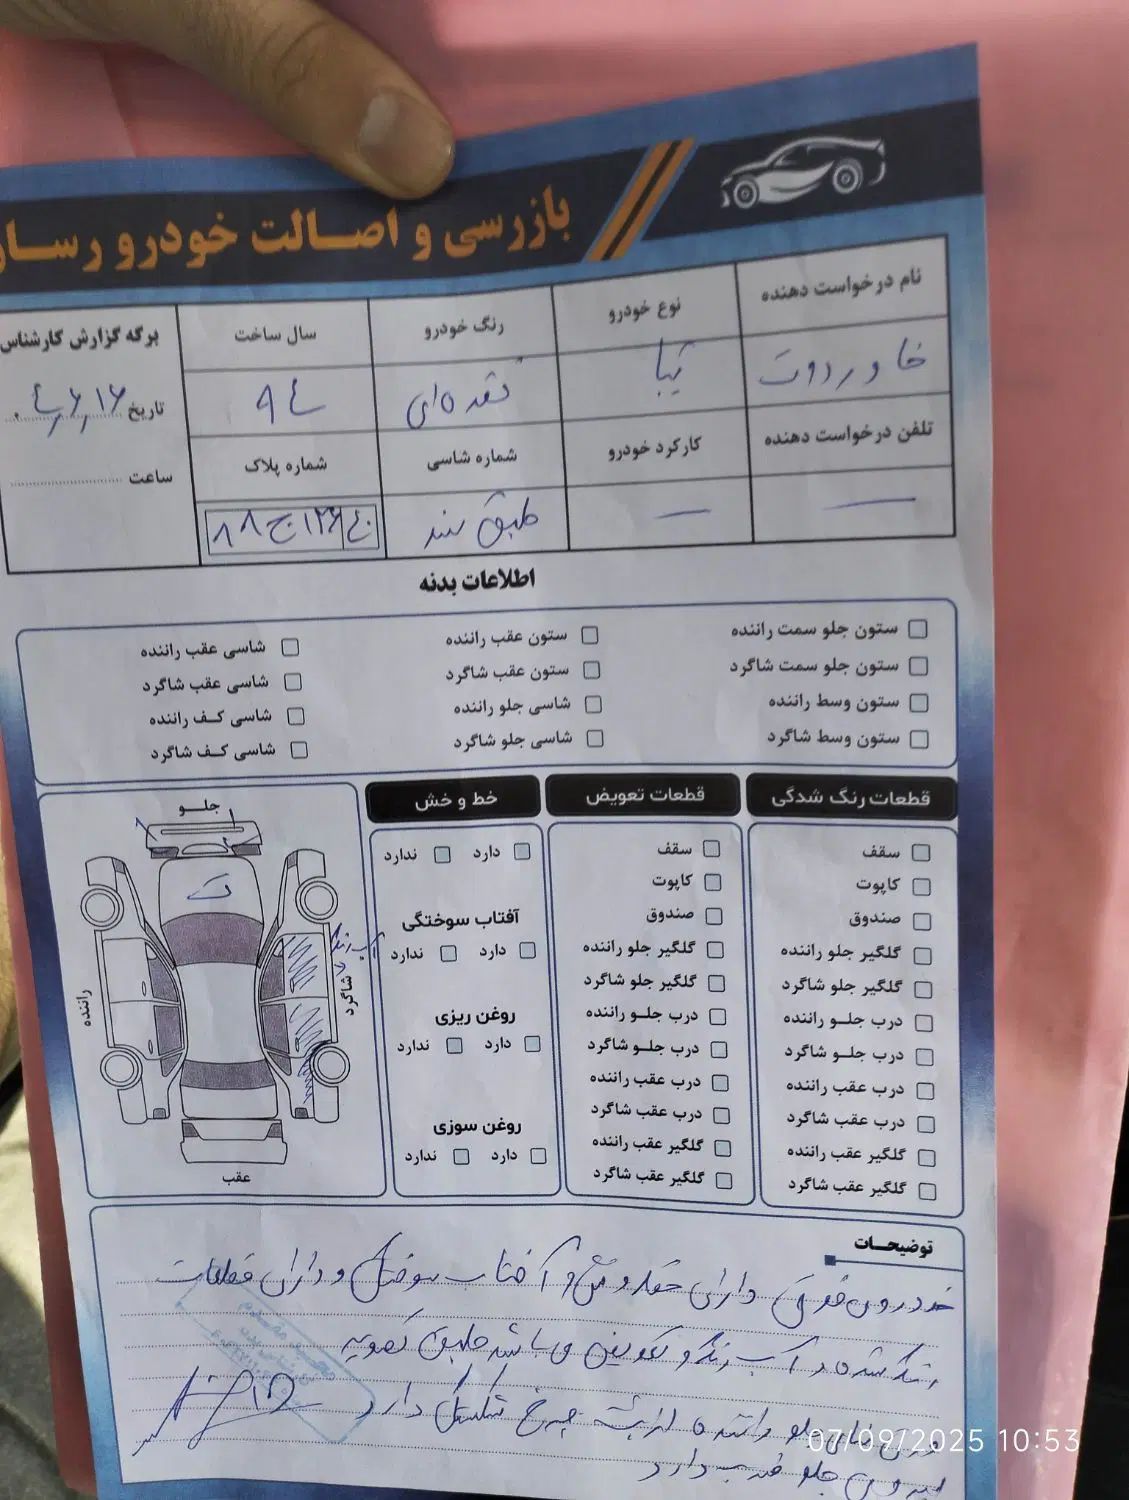 بازرسی و اصالت خودرو
نام درخواست دهنده
نوع خودرو
رنگ خودرو
سال ساخت
برگه گزارش کارشناس
خاوردوت
تیبا
نقره‌ای
۹۴
تاریخ ۰۴٫۶٫۱۶
تلفن درخواست دهنده
کارکرد خودرو
شماره شاسی
شماره پلاک
ساعت
—
—
طبق سند
۸۸ج۱۲۶ ۴۰
اطلاعات بدنه
ستون جلو سمت راننده
ستون جلو سمت شاگرد
ستون وسط راننده
ستون وسط شاگرد
ستون عقب راننده
ستون عقب شاگرد
شاسی جلو راننده
شاسی جلو شاگرد
شاسی عقب راننده
شاسی عقب شاگرد
شاسی کف راننده
شاسی کف شاگرد
قطعات رنگ شدگی
سقف
کاپوت
صندوق
گلگیر جلو راننده
گلگیر جلو شاگرد
درب جلو راننده
درب جلو شاگرد
درب عقب راننده
درب عقب شاگرد
گلگیر عقب راننده
گلگیر عقب شاگرد
قطعات تعویض
سقف
کاپوت
صندوق
گلگیر جلو راننده
گلگیر جلو شاگرد
درب جلو راننده
درب جلو شاگرد
درب عقب راننده
درب عقب شاگرد
گلگیر عقب راننده
گلگیر عقب شاگرد
خط و خش
دارد ندارد
آفتاب سوختگی
دارد ندارد
روغن ریزی
دارد ندارد
روغن سوزی
دارد ندارد
جلو
ت
راننده
شاگرد
آب رنگ
عقب
توضیحات
خودروی فوق دارای خط و خش و آفتاب سوختگی و دارای قطعات
رنگ شده و آب رنگ و تعویض می باشد طبق تصویه
جلو راننده لبه چرخ شکستگی دارد
سینی جلو ضرب دارد
07/09/2025 10:53